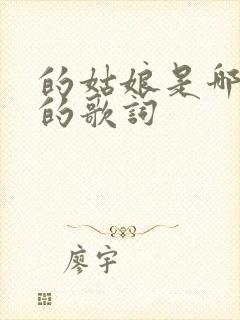 的姑娘是哪
的歌詞
廖宇